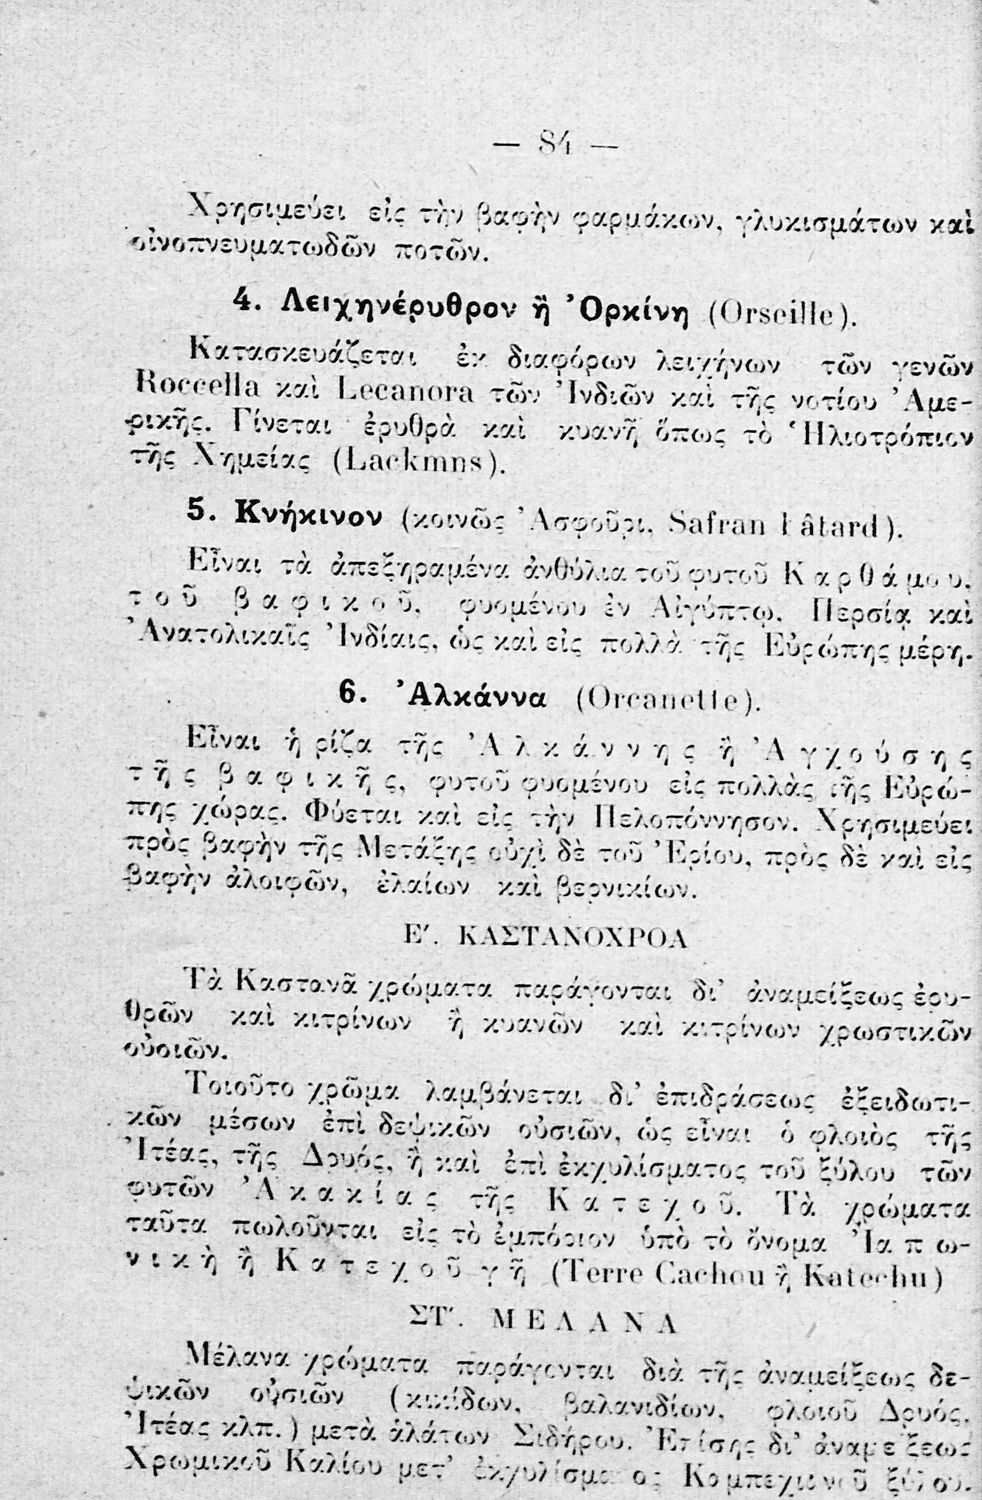 — 84 —
Χρησιμεύει εἰς τὴν βαφὴν φαρμάκων, γλυκισμάτων καὶ
οἰνοπνευματωδῶν ποτῶν.
4. Λειχηνέρυθρον ἢ Ὀρκίνη (Orseille).
Κατασκευάζεται ἐκ διαφόρων λειχήνων τῶν γενῶν
Roccella καὶ Lecanora τῶν Ἰνδιῶν καὶ τῆς νοτίου Ἀμε-
ρικῆς. Γίνεται ἐρυθρὰ καὶ κυανῆ ὅπως τὸ Ἡλιοτρόπιον
τῆς Χημείας (Lackmns).
5. Κνήκινον (κοινῶς Ἀσφοῦρι. Safran bâtard).
Εἶναι τὰ ἀπεξηραμένα ἀνθύλια τοῦ φυτοῦ Καρθάμου,
τοῦ βαφικοῦ, φυομένου ἐν Αἰγύπτῳ, Περσίᾳ καὶ
Ἀνατολικαῖς Ἰνδίαις, ὡς καὶ εἰς πολλὰ τῆς Εὐρώπης μέρη.
6. Ἀλκάννα (Orcanette).
Εἶναι ἡ ρίζα τῆς Ἀλκάννης ἢ Ἀγχούσης
τῆς βαφικῆς, φυτοῦ φυομένου εἰς πολλὰς τῆς Εὐρώ-
πης χώρας. Φύεται καὶ εἰς τὴν Πελοπόννησον. Χρησιμεύει
πρὸς βαφὴν τῆς Μετάξης οὐχὶ δὲ τοῦ Ἐρίου, πρὸς δὲ καὶ εἰς
βαφὴν ἀλοιφῶν, ἐλαίων καὶ βερνικίων.
Ε′. ΚΑΣΤΑΝΟΧΡΟΑ
Τὰ Καστανᾶ χρώματα παράγονται δι’ ἀναμείξεως ἐρυ-
θρῶν καὶ κιτρίνων ἢ κυανῶν καὶ κιτρίνων χρωστικῶν
οὐσιῶν.
Τοιοῦτο χρῶμα λαμβάνεται δι’ ἐπιδράσεως ἐξειδωτι-
κῶν μέσων ἐπὶ δεψικῶν οὐσιῶν, ὡς εἶναι ὁ φλοιὸς τῆς
Ἰτέας, τῆς Δρυός, ἢ καὶ ἐπὶ ἐκχυλίσματος τοῦ ξύλου τῶν
φυτῶν Ἀκακίας τῆς Κατεχοῦ. Τὰ χρώματα
ταῦτα πωλοῦνται εἰς τὸ ἐμπόριον ὑπὸ τὸ ὄνομα Ἰαπω-
νικὴ ἢ Κατεχοῦ γῆ (Terre Cachou ἢ Katechu)
ΣΤ′. ΜΕΛΑΝΑ
Μέλανα χρώματα παράγονται διὰ τῆς ἀναμείξεως δε-
ψικῶν οὐσιῶν (κικίδων, βαλανιδίων, φλοιοῦ Δρυός,
Ἰτέας κλπ.) μετὰ ἁλάτων Σιδήρου. Ἐπίσης δι’ ἀναμείξεως
Χρωμικοῦ Καλίου μετ’ ἐκχυλίσματος Καμπεχιανοῦ ξύλου.